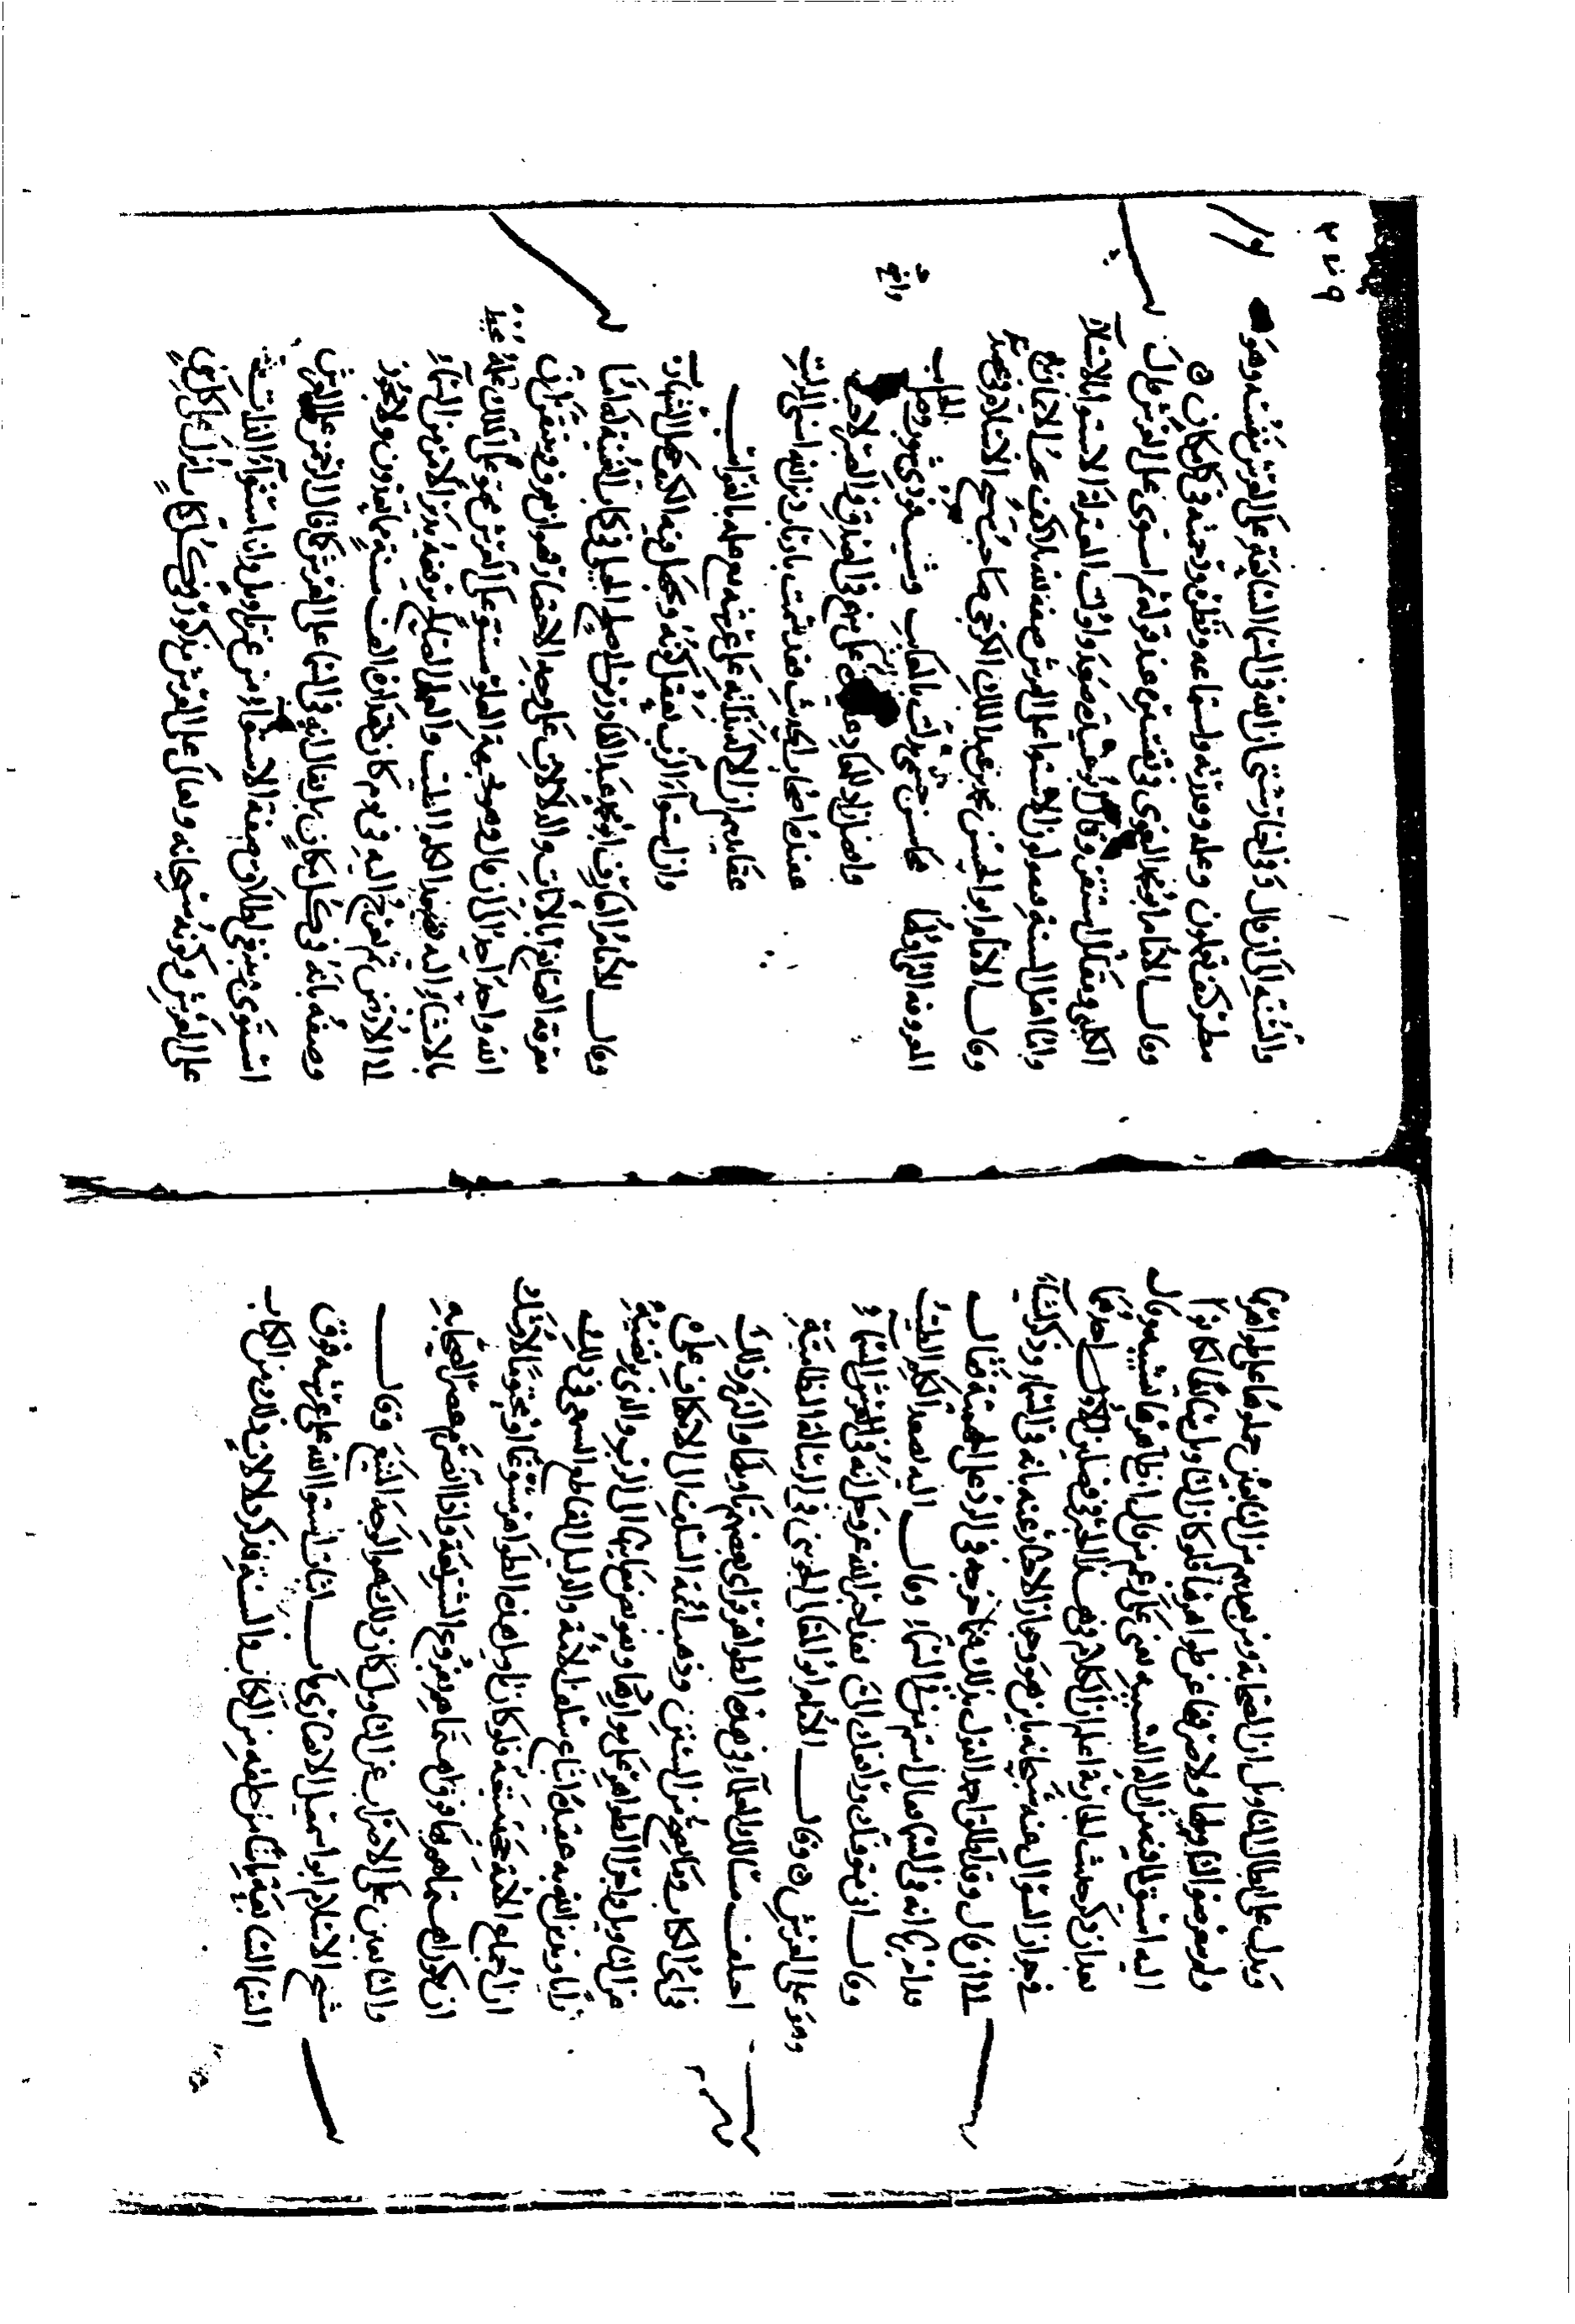 ويدل على ابطال التاويل ان الصحابة ومن بعدهم من التابعين حملوها على ظواهرها
ولم يتعرضوا لتاويلها ولا صرفها عن ظواهرها فلو كان التاويل سائغا لكانوا
اليه اسبق لما فيه من ازالة التشبيه يعني على زعم من قال ان ظاهرها تشبيه وقال
حديث الجارية اعلم ان الكلام في هذا الخبر في فصلين احدهما
في جواز السؤال عنه سبحانه باين هو وجواز الاخبار عنه بانه في السماء وذكر اشياء
الى ان قال وقد اطلق احمد القول بذلك فيما خرجه في الرد على الجهمية فقال
قد اخبرنا انه في السما فقال أأمنتم من في السماء وقال اليه يصعد الكلم الطيب
وقال اني متوفيك ورافعك الي فقد اخبر الله عز وجل انه في السماء
وهو على العرش وقال الامام ابو المعالي الجويني في الرسالة النظامية
اختلفت مسالك العلماء في هذه الظواهر فرأى بعضهم تاويلها والتزم ذلك
في آي الكتاب وما يصح من السنن وذهب ائمة السلف الى الانكفاف عن
عن التاويل واجرا الظواهر على مواردها وتفويض معانيها الى الرب والذي نرتضيه
رأيا وندين الله به عقيدة اتباع سلف الامة والدليل القاطع السمعي في ذلك
ان اجماع الامة حجة متبعة فلو كان تاويل هذه الظواهر مسوغا او محتوما لاوشك
ان يكون اهتمامهم بها فوق اهتمامهم بفروع الشريعة واذا انصرم عصر الصحابة
والتابعين على الاضراب عن التاويل كان ذلك هو الوجه المتبع وقال
شيخ الاسلام ابو اسمعيل الانصاري باب اثبات استوا الله على عرشه فوق
السما السابعة باينا من خلقه من الكتاب والسنة فذكر دلالات ذلك من الكتاب
والسنة الى ان قال وفي اخبار شتى ان الله في السما السابعة على العرش بنفسه وهو
ينظر كيف تعملون وعلمه وقدرته واستماعه ونظره ورحمته في كل مكان
وقال الامام ابو محمد البغوي في تفسيره عند قوله ثم استوى على العرش قال
الكلبي ومقاتل استقر وقال ابو عبيدة صعد واولت المعتزلة الاستوا بالاستيلا
واما اهل السنة فيقولون الاستوا على العرش صفة لله بلا كيف يجب الايمان به
وقال الامام ابو الحسن محمد بن عبد الملك الكرجي صاحب شيخ الاسلام في قصيدته
المعروفة التي اولها محاسن جسمي بدلت بالمعايب وشيب فودي شوب وصل الحبايب
وافضل زاد للمعاد عقيدة على منهج في الصدق والصبر لاحب
عقيدة اصحاب الحديث فقد سمت بارباب دين الله اسنى المراتب
عقايدهم ان الاله بذاته على عرشه مع علمه بالغوايب
وان استواء الرب يعقل كونه ويجهل فيه الكيف جهل الشهارب
وقال الامام العارف ابو محمد عبد القادر بن ابي صالح الجيلي في كتاب الغنية له اما
معرفة الصانع بالايات والدلالات على وجه الاختصار فهو ان يعرف ويتيقن ان
الله واحد احد الى ان قال وهو بجهة العلو مستو على العرش محتو على الملك محيط علمه
بالاشياء اليه يصعد الكلم الطيب والعمل الصالح يرفعه يدبر الامر من السماء
الى الارض ثم يعرج اليه في يوم كان مقداره الف سنة مما تعدون ولا يجوز
وصفه بانه في كل مكان بل يقال انه في السما على العرش كما قال الرحمن على العرش
استوى وينبغي اطلاق صفة الاستوا من غير تاويل وانه استواء الذات
على العرش وكونه سبحانه وتعالى على العرش مذكور في كل كتاب انزل على كل نبي